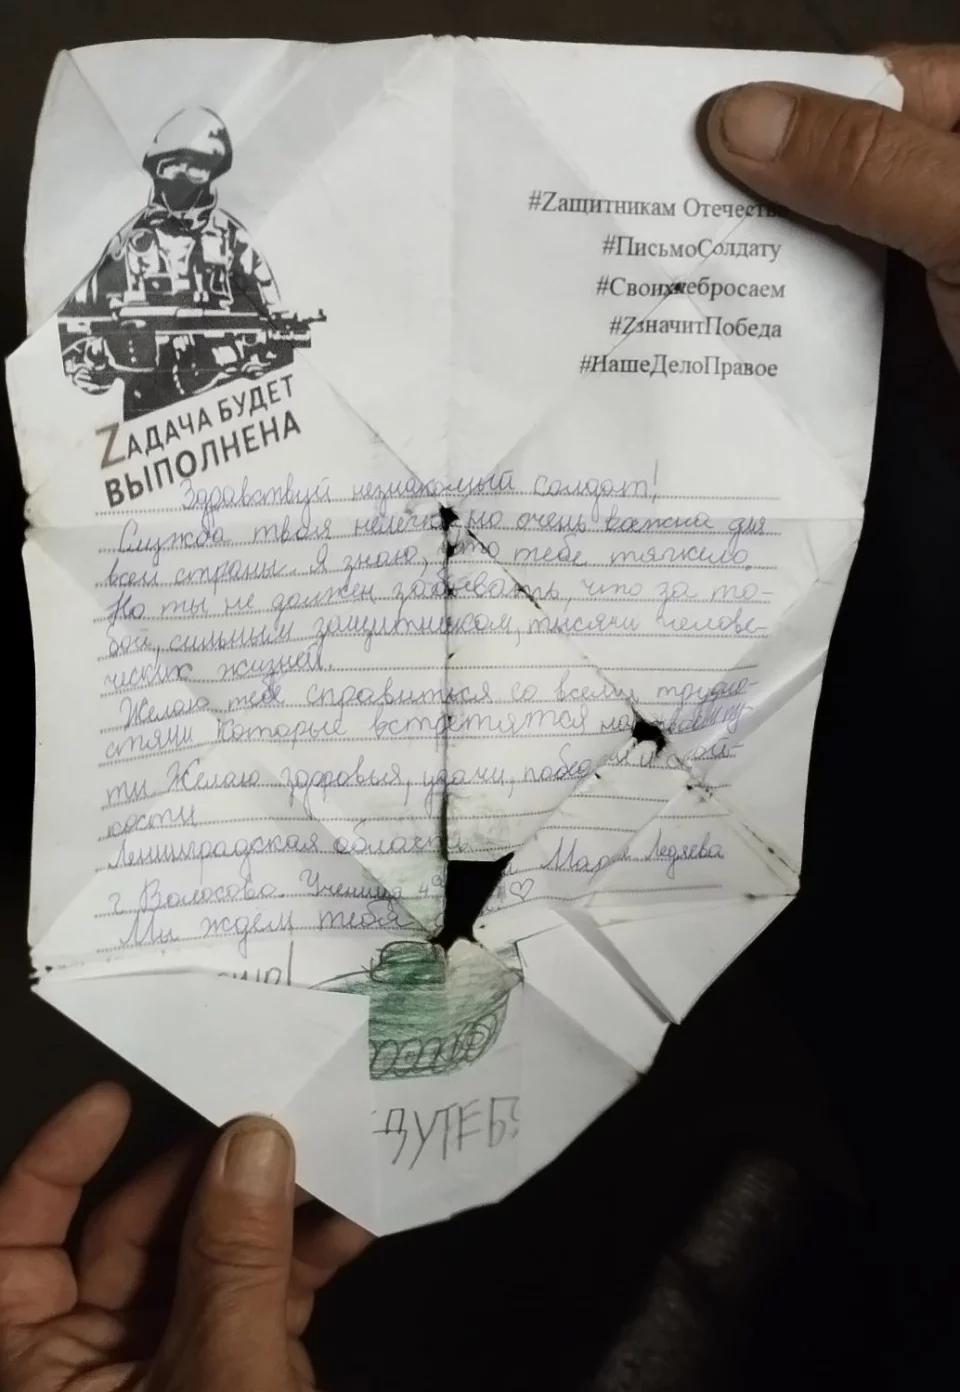 #Zащитникам Отечества
#ПисьмоСолдату
#Своихнебросаем
#ZзначитПобеда
#НашеДелоПравое
ZАДАЧА БУДЕТ
ВЫПОЛНЕНА
Здравствуй незнакомый солдат!
Служба твоя нелегка но очень важна для
всей страны. Я знаю, что тебе тяжело.
Но ты не должен забывать, что за то-
бой, сильным защитником, тысячи челове-
ческих жизней.
Желаю тебе справиться со всеми трудно-
стями которые встретятся на твоем пу-
ти. Желаю здоровья, удачи, победы и стой-
кости
Ленинградская область Мария Ледяева
г Волосова. Ученица 4
Мы ждём тебя
ДУТЕБ